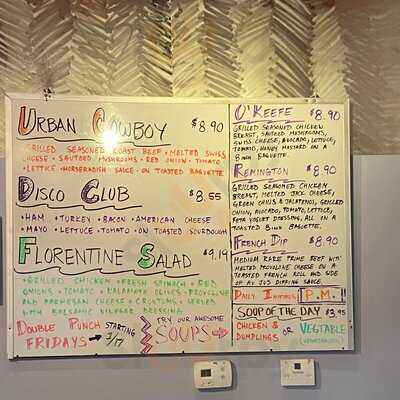 URBAN COWBOY $8.90
GRILLED SEASONED ROAST BEEF • MELTED SWISS
CHEESE • SAUTEED MUSHROOMS • RED ONION • TOMATO
• LETTUCE • HORSERADISH SAUCE • ON TOASTED BAGUETTE
DISCO CLUB $8.55
• HAM • TURKEY • BACON • AMERICAN CHEESE
• MAYO • LETTUCE • TOMATO • ON TOASTED SOURDOUGH
FLORENTINE SALAD $9.19
• GRILLED CHICKEN • FRESH SPINACH • RED
ONIONS • TOMATO • KALAMATA OLIVES • PROVOLONE
AND PARMESAN CHEESE • CROUTONS • SERVED
WITH BALSAMIC VINEGAR DRESSING
DOUBLE PUNCH STARTING
FRIDAYS → 3/17
TRY OUR AWESOME
SOUPS
O'KEEFE $8.90
GRILLED SEASONED CHICKEN
BREAST, SAUTEED MUSHROOMS,
SWISS CHEESE, AVOCADO, LETTUCE,
TOMATO, HONEY MUSTARD ON A
8 INCH BAGUETTE.
REMINGTON $8.90
GRILLED SEASONED CHICKEN
BREAST, MELTED JACK CHEESE,
GREEN CHILIS & JALAPENO, GRILLED
ONION, AVOCADO, TOMATO, LETTUCE,
FETA YOGURT DRESSING, ALL ON A
TOASTED 8 INCH BAGUETTE.
FRENCH DIP $8.90
MEDIUM RARE PRIME BEEF WITH
MELTED PROVOLONE CHEESE ON A
TOASTED FRENCH ROLL AND SIDE
OF AU JUS DIPPING SAUCE.
DAILY P.M.
SOUP OF THE DAY $3.95
CHICKEN & DUMPLINGS OR VEGTABLE